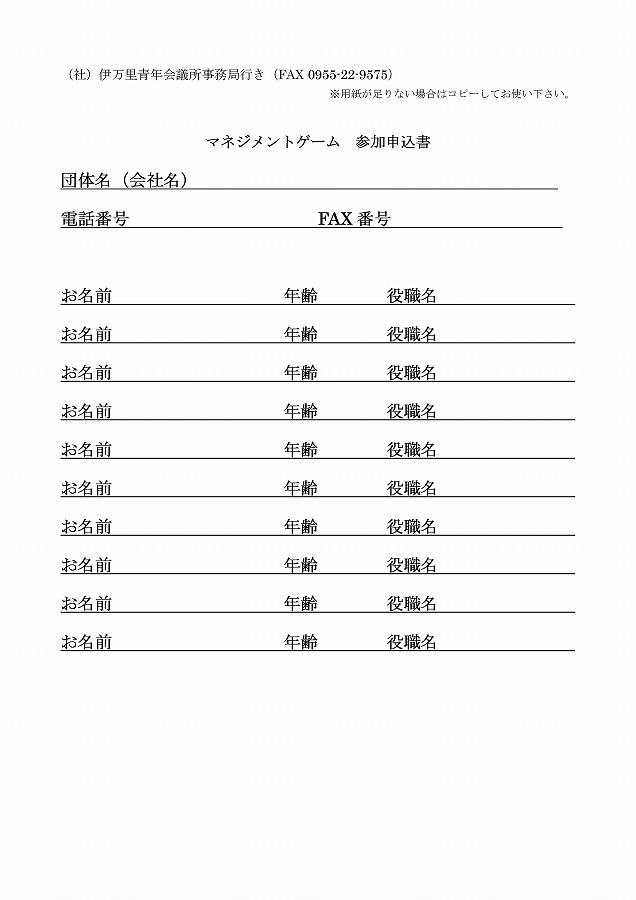 （社）伊万里青年会議所事務局行き（FAX 0955-22-9575）
※用紙が足りない場合はコピーしてお使い下さい。
マネジメントゲーム　参加申込書
団体名（会社名）
電話番号　FAX 番号
お名前　年齢　役職名
お名前　年齢　役職名
お名前　年齢　役職名
お名前　年齢　役職名
お名前　年齢　役職名
お名前　年齢　役職名
お名前　年齢　役職名
お名前　年齢　役職名
お名前　年齢　役職名
お名前　年齢　役職名